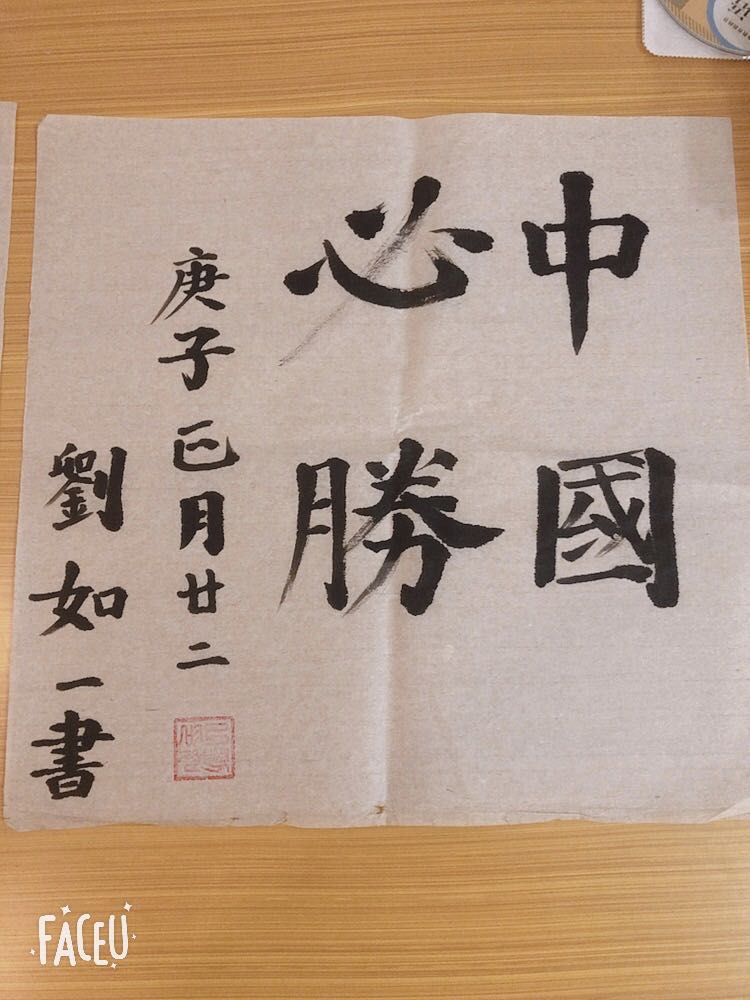 中國
必勝
庚子正月廿二
劉如一書
FACEU